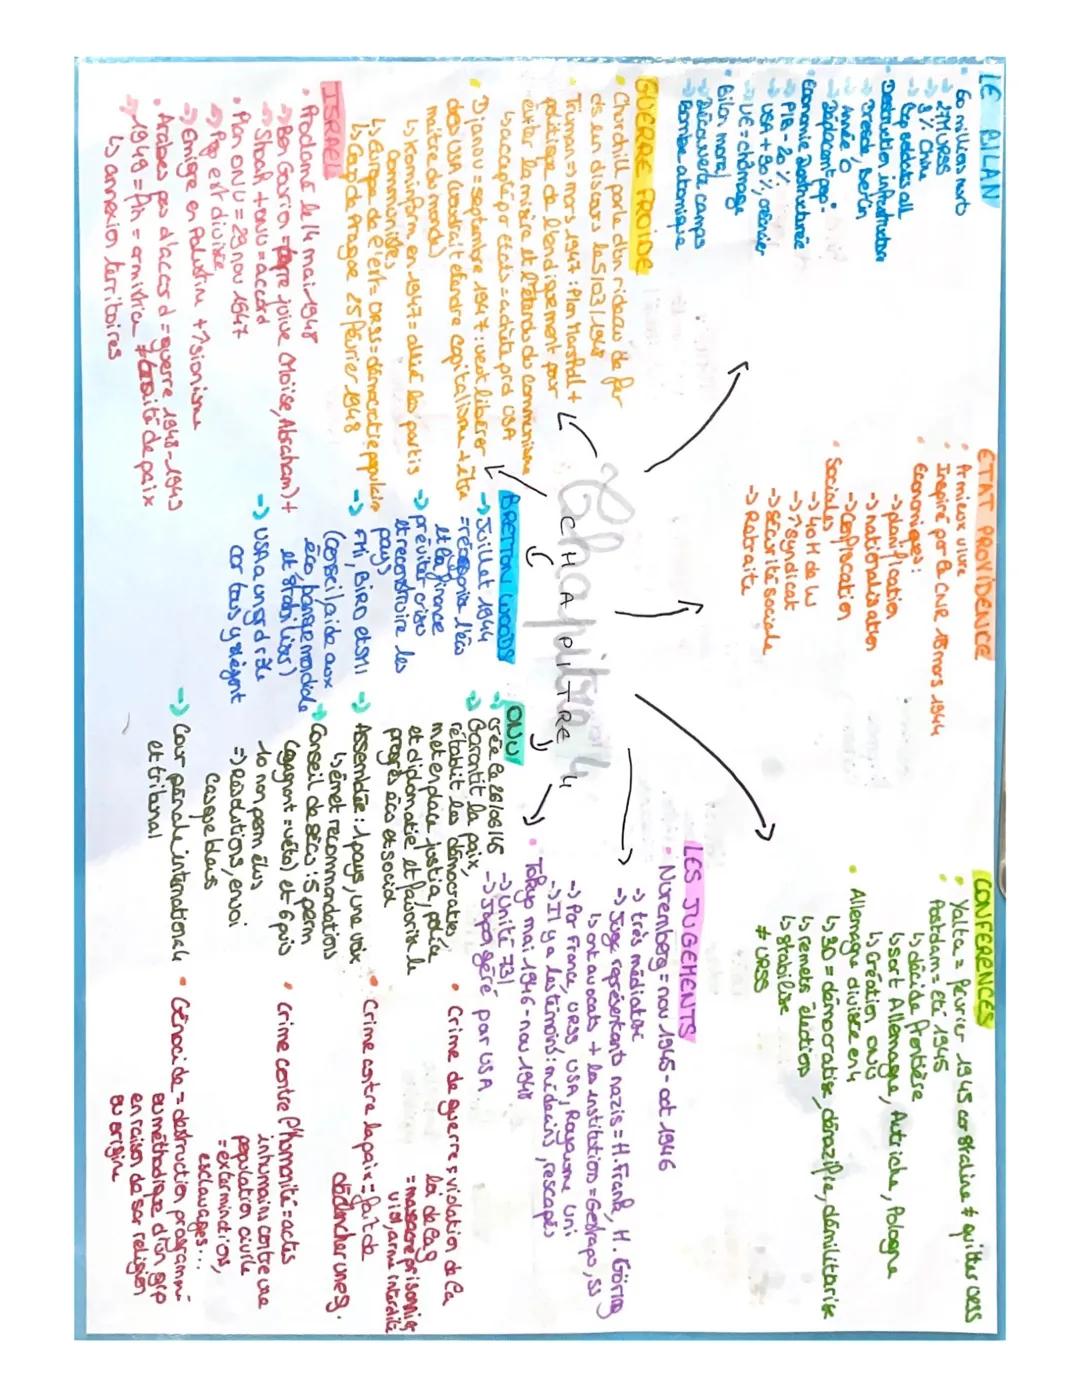 LE BILAN
• 60 millions morts
-> 27M URSS
-> 3% Chine
-> Cap soldats all
• Destruction infrastructure
-> Creede, Berlin
-> Année 0
-> Déplacent pop°
• Economie Destructurée
-> PIB - 20%
-> USA + 90%, créancier
-> UE = chômage
• Bilan moral
-> Découverte camps
-> Bombe atomique
ETAT PROVIDENCE
• A mieux vivre
• Inspiré par la CNR 15 mars 1944
• Economiques :
-> planification
-> nationalisation
-> confiscation
• Sociales
-> 40H de W
-> ↗ syndicat
-> sécurité sociale
-> Retraite
CONFERENCES
• Yalta = février 1945 car staline ≠ quitter URSS
• Postdam = été 1945
↳ décide frontière
↳ sort Allemagne, Autriche, Pologne
↳ Création onu
• Allemagne divisée en 4
↳ 3D = démocratise, dénazifie, démilitarise
↳ remets élection
↳ stabilise
≠ URSS
GUERRE FROIDE
• Churchill parle d'un rideau de fer
ds un discours le 5/03/1946
• Truman => mars 1947 : Plan Marshall +
politique de l'endiguement pour
éviter la misère et l'étendu du communisme
↳ accepté par états = achète prd USA
• Djanov = septembre 1947 : veut libérer
des USA (voudrait étendre capitalisme + être
maitre du monde)
↳ Kominform en 1947 = allier les partis
communistes
↳ Europe de l'est = URSS = démocratie populaire
↳ Coup de Prague 25 février 1948
CHAPITRE 4
Chapitre 4
LES JUGEMENTS
• Nuremberg = nov 1945 - oct 1946
-> très médiatisé
-> Juge représentants nazis = H. Frank, H. Göring
↳ ont avocats + les institutions = Gestapo, SS
-> Par France, URSS, USA, Royaume Uni
-> Il y a les témoins : médecins, rescapés
• Tokyo mai 1946 - nov 1948
-> Unité 731
-> Japo géré par USA
BRETTON WOODS
-> Juillet 1944
= réorganise l'éco
et la finance
-> préviter crise
et reconstruire les
pays
-> FMI, BIRD et SMI
(conseil, aide aux
éco, banque mondiale
et stabiliser)
-> USA a un grd rôle
car tous y siègent
ONU
-> créée la 26/06/45
-> Garantit la paix,
rétablit les démocraties,
met en place justice, police
et diplomatie et favorise le
progrès éco et social
-> Assemblée : 1 pays, une voix
↳ émet recommandations
-> Conseil de sécu : 5 perm
(gagnant = véto) et 6 puis
10 non perm élus
=> Résolutions, envoi
casque bleus
-> Cour pénale internationale
et tribunal
ISRAEL
• Proclamé le 14 mai 1948
-> Ben Gurion = terre juive (Moïse, Abraham) +
-> Shoah + ONU = accord
• Plan ONU = 29 nov 1947
-> Pop est divisée
-> Emigre en Palestine + ↗ sionisme
• Arabes pas d'accord = guerre 1948-1949
-> 1949 = fin = armistice ≠ traité de paix
↳ annexion territoires
• Crime de guerre = violation de la
loi de la g
= massacre prisonnier
viol, arme interdite
• Crime contre la paix = fait de
déclencher une g.
• Crime contre l'humanité = actes
inhumains contre une
population civile
= extermination,
esclavages...
• Génocide = destruction programmé
ou méthodique d'un grp
en raison de sa religion
ou origine